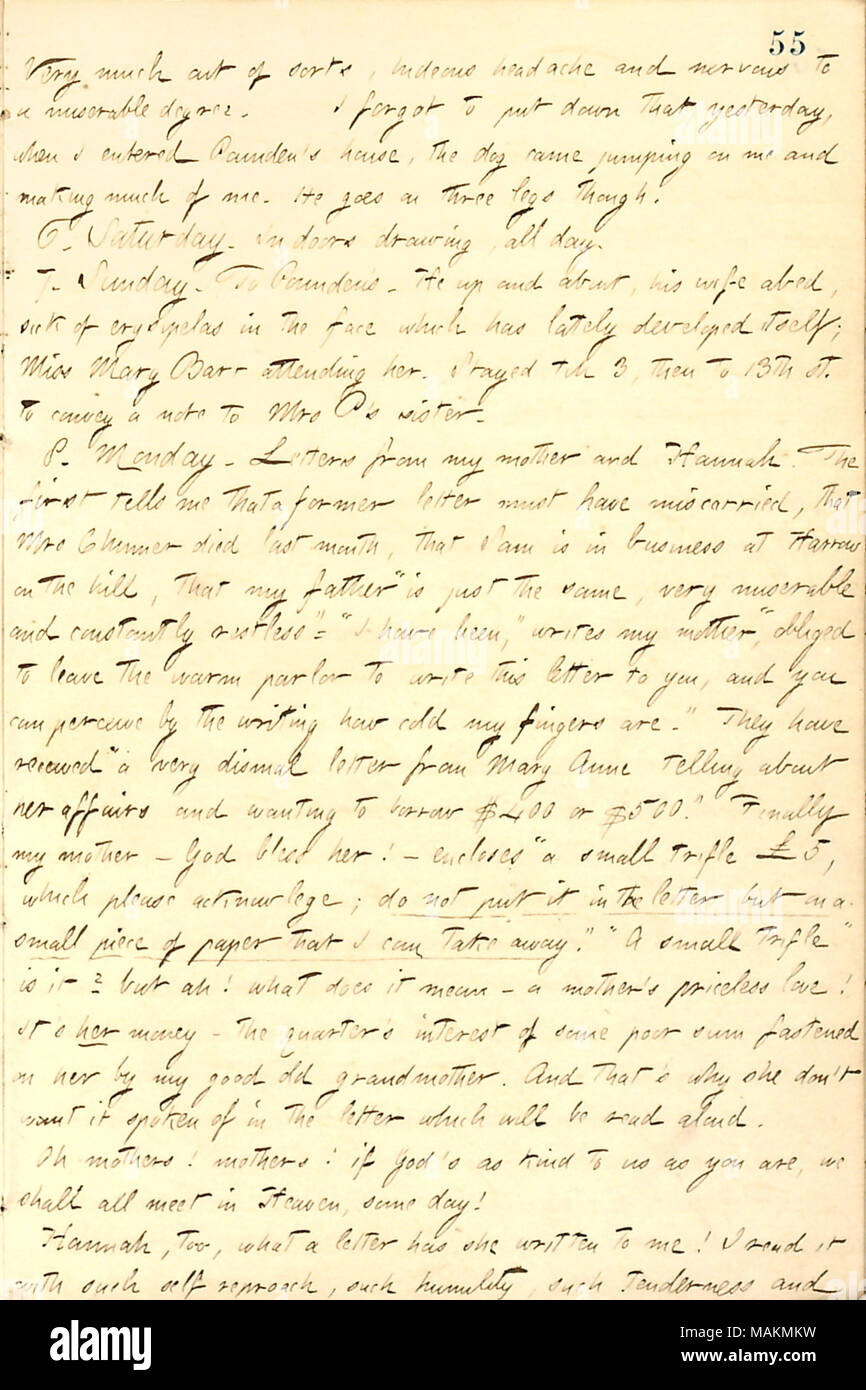 55
Very much out of sorts, hideous headache and nervous to
a miserable degree. I forgot to put down that yesterday,
when I entered Pounden's house, the dog came jumping on me and
making much of me. He goes on three legs though.
6. Saturday. In doors drawing, all day.
7. Sunday. To Pounden's. He up and about, his wife abed,
sick of erysipelas in the face which has lately developed itself;
Miss Mary Barr attending her. Stayed till 3, then to 13th st.
to convey a note to Mrs P's sister.
8. Monday. Letters from my mother and Hannah. The
first tells me that a former letter must have miscarried, that
Mrs Chinner died last month, that Sam is in business at Harrow
on the hill, that my father "is just the same, very miserable
and constantly restless" = "I have been," writes my mother, "obliged
to leave the warm parlor to write this letter to you, and you
can perceive by the writing how cold my fingers are." They have
received "a very dismal letter from Mary Anne telling about
her affairs and wanting to borrow $400 or $500." Finally
my mother — God bless her! — encloses "a small trifle £5,
which please acknowlege; do not put it in the letter but on a
small piece of paper that I can take away." "A small trifle"
is it? but ah! what does it mean — a mother's priceless love!
It's her money — the quarter's interest of some poor sum fastened
on her by my good old grandmother. And that's why she don't
want it spoken of in the letter which will be read aloud.
Oh mothers! mothers! if God's as kind to us as you are, we
shall all meet in Heaven, some day!
Hannah, too, what a letter has she written to me! I read it
with such self reproach, such humility, such tenderness and
alamy
Image ID: MAKMKW
www.alamy.com